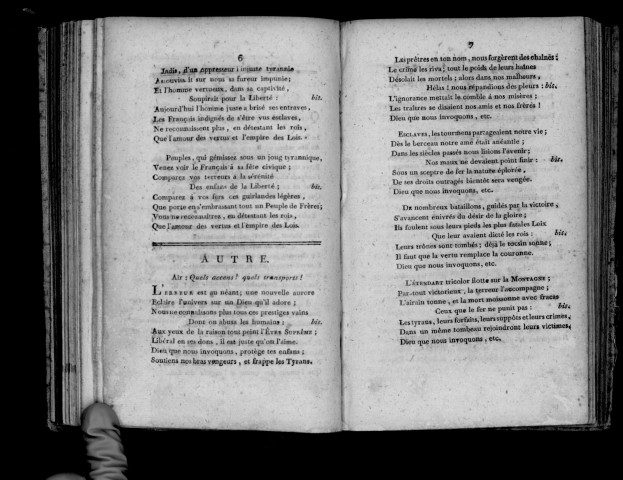 6
Jadis, d'un oppresseur l'injuste tyrannie
Assouvissait sur nous sa fureur impunie;
Et l'homme vertueux, dans sa captivité,
Soupirait pour la Liberté : bis.
Aujourd'hui l'homme juste a brisé ses entraves,
Les Français indignés de s'être vus esclaves,
Ne reconnaissent plus, en détestant les rois,
Que l'amour des vertus et l'empire des Lois.
Peuples, qui gémissez sous un joug tyrannique,
Venez voir le Français à sa fête civique ;
Comparez vos terreurs à la sérénité
Des enfans de la Liberté ; bis.
Comparez à vos fers ces guirlandes légères,
Que porte en s'embrassant tout un Peuple de Frères;
Vous ne reconnaîtrez, en détestant les rois,
Que l'amour des vertus et l'empire des Lois.
AUTRE.
Air : Quels accens! quels transports!
L'ERREUR est au néant; une nouvelle aurore
Eclaire l'univers sur un Dieu qu'il adore;
Nous ne connaissons plus tous ces prestiges vains
Dont on abusa les humains : bis.
Aux yeux de la raison tout peint l'ÊTRE SUPRÊME;
Libéral en ses dons, il est juste qu'on l'aime.
Dieu que nous invoquons, protège tes enfans;
Soutiens nos bras vengeurs, et frappe les Tyrans.
7
Les prêtres en ton nom, nous forgèrent des chaînes;
Le crime les riva; tout le poids de leurs haines
Désolait les mortels; alors dans nos malheurs,
Hélas! nous répandions des pleurs : bis.
L'ignorance mettait le comble à nos misères;
Les traîtres se disaient nos amis et nos frères!
Dieu que nous invoquons, etc.
ESCLAVES, les tourmens partageaient notre vie;
Dès le berceau notre âme était anéantie;
Dans les siècles passés nous lisions l'avenir;
Nos maux ne devaient point finir : bis.
Sous un sceptre de fer la nature éplorée,
De ses droits outragés bientôt sera vengée.
Dieu que nous invoquons, etc.
DE nombreux bataillons, guidés par la victoire,
S'avancent enivrés du désir de la gloire;
Ils foulent sous leurs pieds les plus fatales Loix
Que leur avaient dicté les rois : bis.
Leurs trônes sont tombés; déjà le tocsin sonne;
Il faut que la vertu remplace la couronne.
Dieu que nous invoquons, etc.
L'ÉTENDART tricolor flotte sur la MONTAGNE;
Par-tout victorieux, la terreur l'accompagne;
L'airain tonne, et la mort moissonne avec fracas
Ceux que le fer ne punit pas : bis.
Les tyrans, leurs forfaits, leurs suppôts et leurs crimes,
Dans un même tombeau rejoindront leurs victimes.
Dieu que nous invoquons, etc.